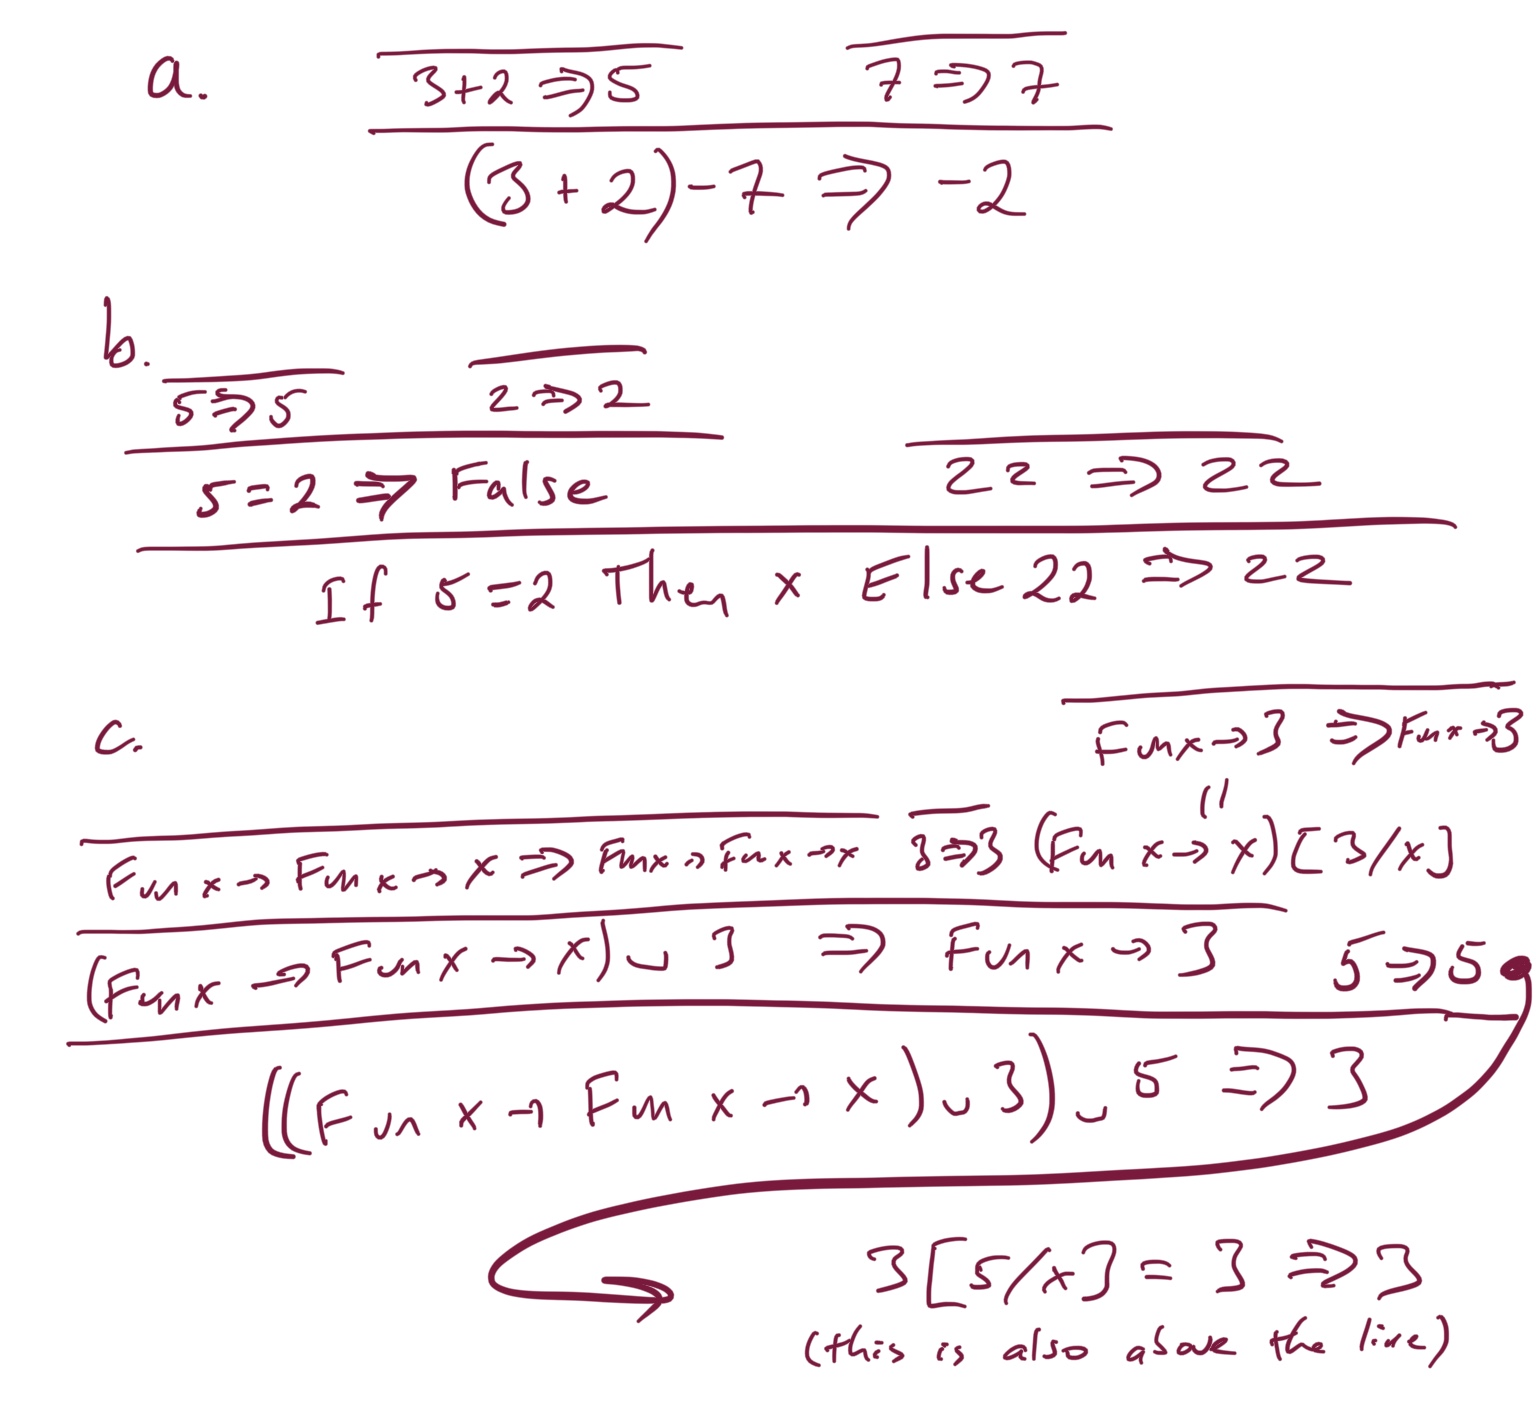 a.
3+2 ⇒ 5    7 ⇒ 7
(3 + 2) - 7 ⇒ -2
b.
5 ⇒ 5    2 ⇒ 2
5 = 2 ⇒ False    22 ⇒ 22
If 5 = 2 Then x Else 22 ⇒ 22
c.
Fun x → 3 ⇒ Fun x → 3
||
Fun x → Fun x → x ⇒ Fun x → Fun x → x    3 ⇒ 3    (Fun x → x)[3/x]
(Fun x → Fun x → x) ⌣ 3 ⇒ Fun x → 3    5 ⇒ 5
(((Fun x → Fun x → x) ⌣ 3) ⌣ 5 ⇒ 3
3[5/x] = 3 ⇒ 3
(this is also above the line)